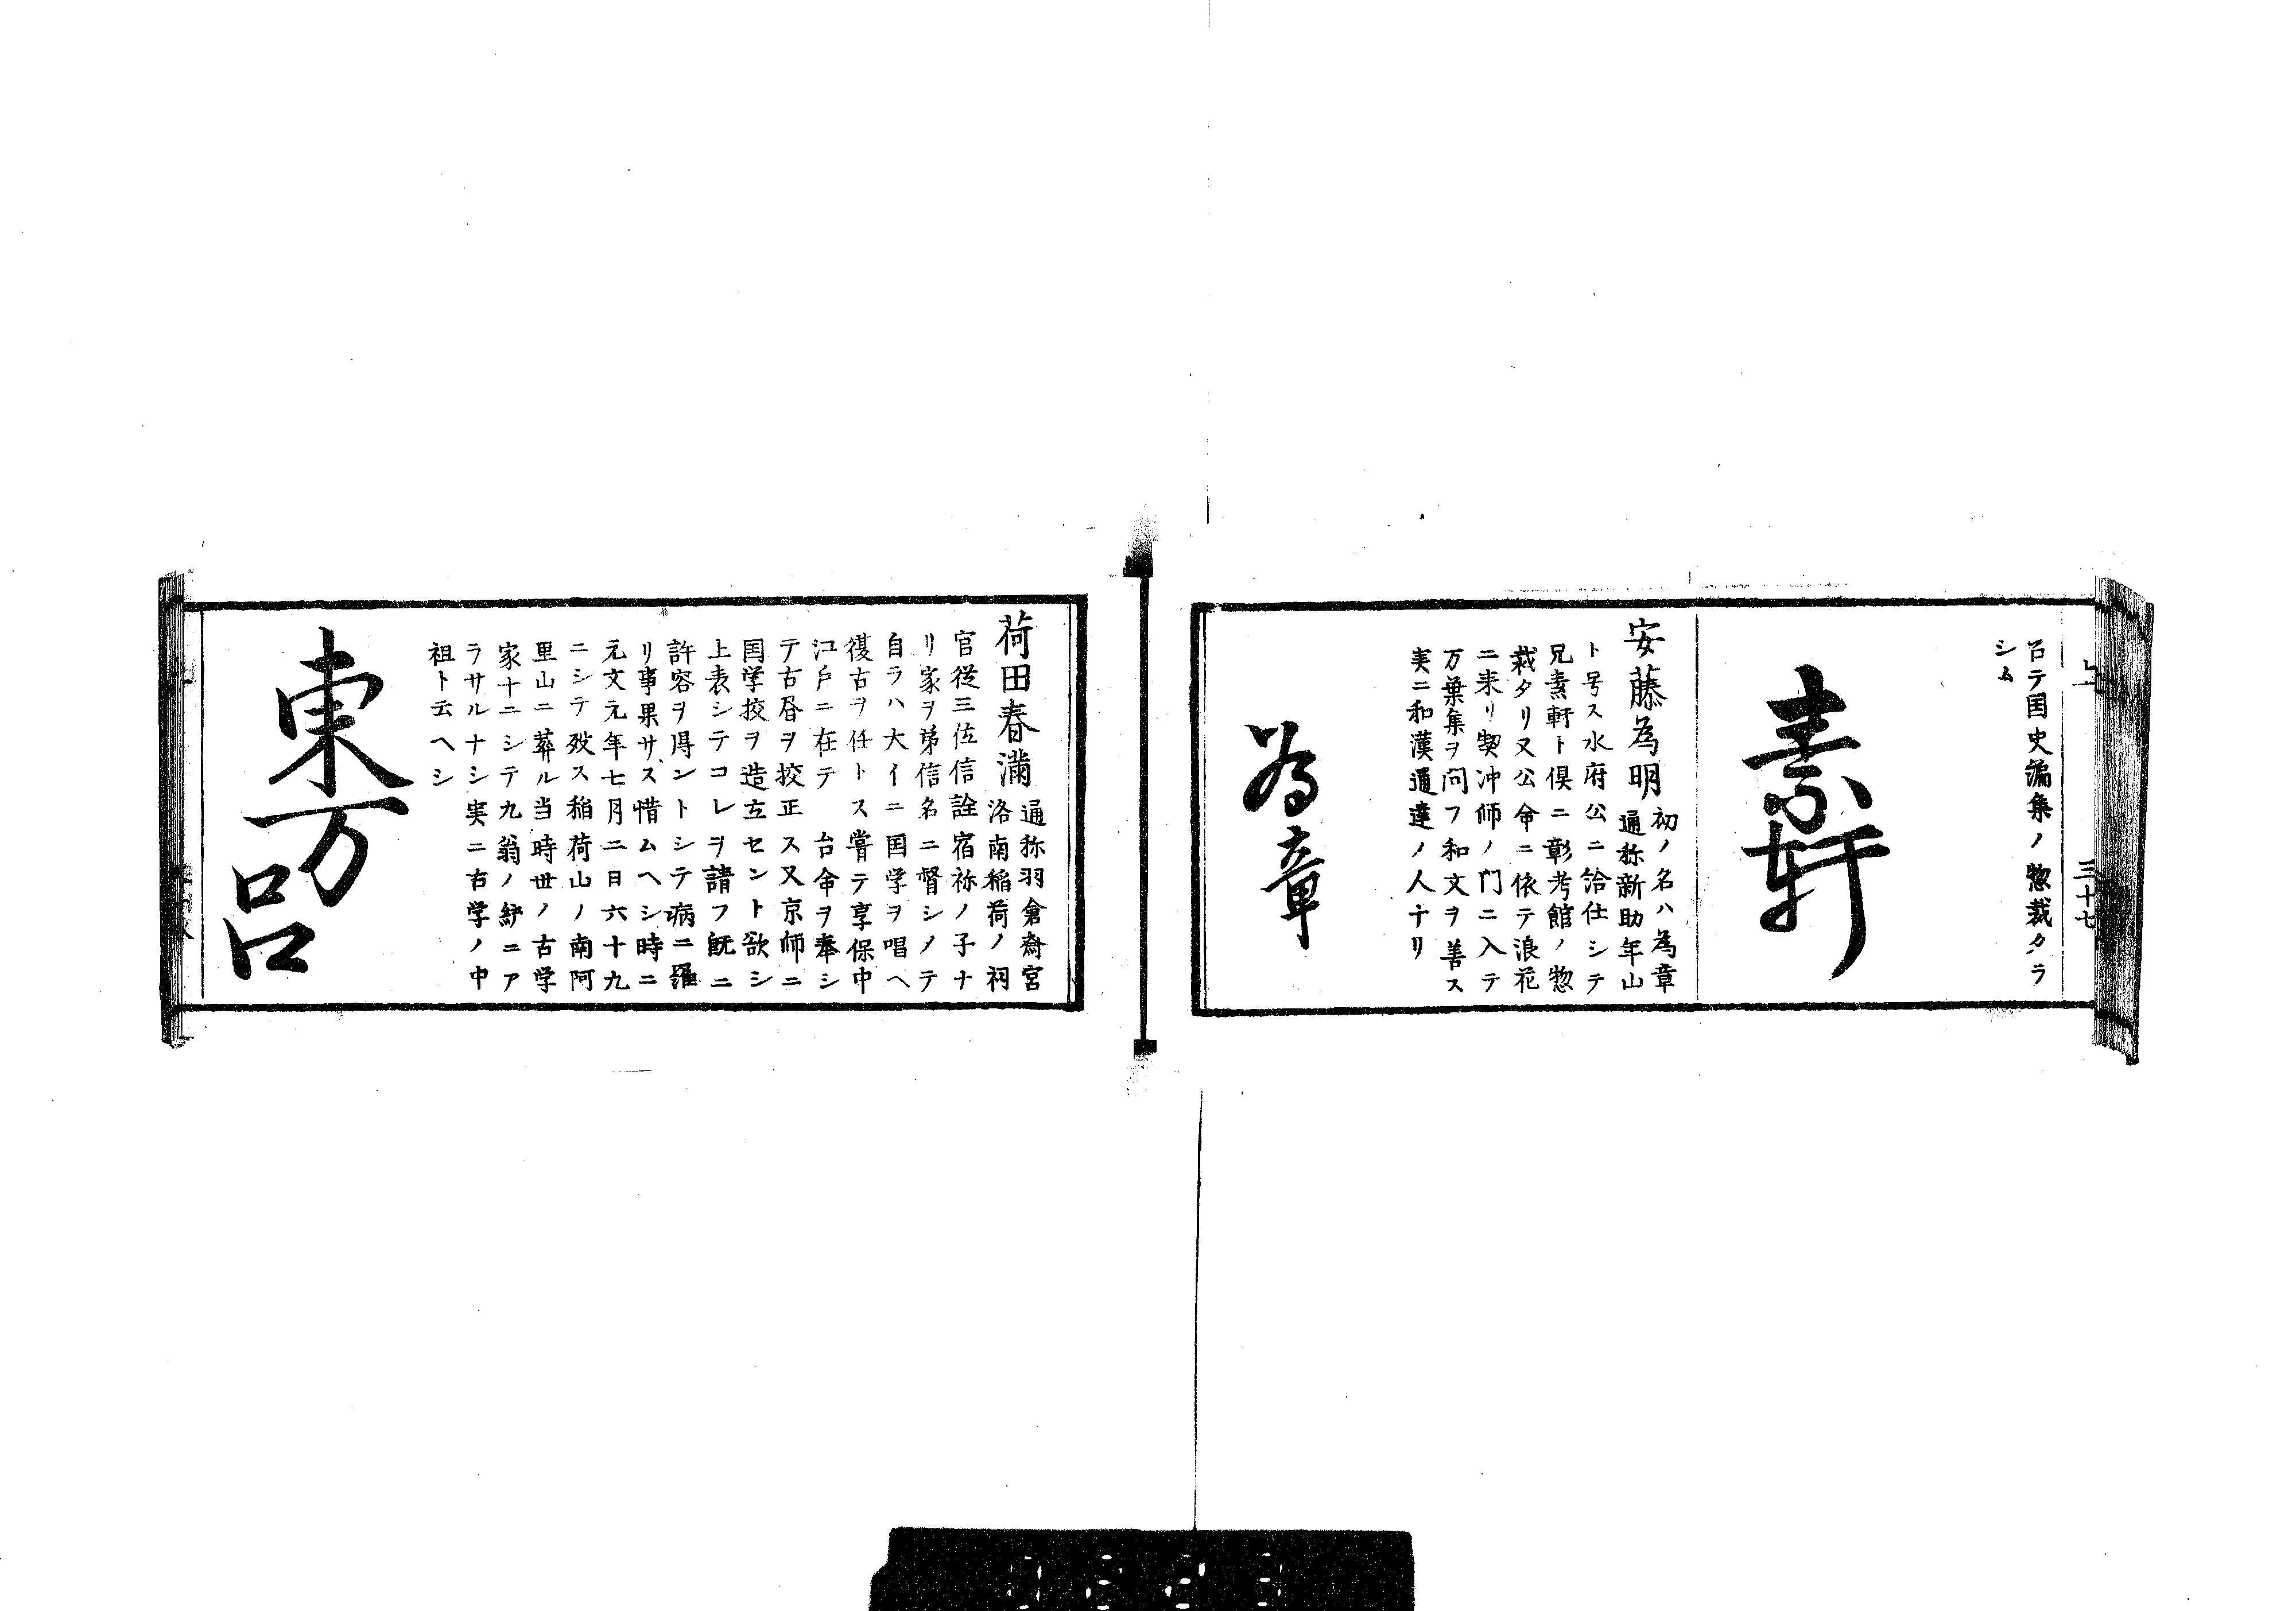 三十七
召テ国史編集ノ惣裁タラ
シム
素軒
安藤為明
初ノ名ハ為章
通称新助年山
ト号ス水府公ニ給仕シテ
兄素軒ト倶ニ彰考館ノ惣
裁タリ又公命ニ依テ浪花
ニ来リ契冲師ノ門ニ入テ
万葉集ヲ問フ和文ヲ善ス
実ニ和漢通達ノ人ナリ
為章
荷田春満
通称羽倉斎宮
洛南稲荷ノ祠
官従三佐信詮宿祢ノ子ナ
リ家ヲ弟信名ニ督シメテ
自ラハ大イニ国学ヲ唱ヘ
復古ヲ任トス嘗テ享保中
江戸ニ在テ 台命ヲ奉シ
テ古昼ヲ挍正ス又京師ニ
国学挍ヲ造立セント欲シ
上表シテコレヲ請フ既ニ
許容ヲ得ントシテ病ニ罹
リ事果サス惜ムヘシ時ニ
元文元年七月二日六十九
ニシテ歿ス稲荷山ノ南阿
里山ニ葬ル当時世ノ古学
家十ニシテ九翁ノ紗ニア
ラサルナシ実ニ古学ノ中
祖ト云ヘシ
東万呂